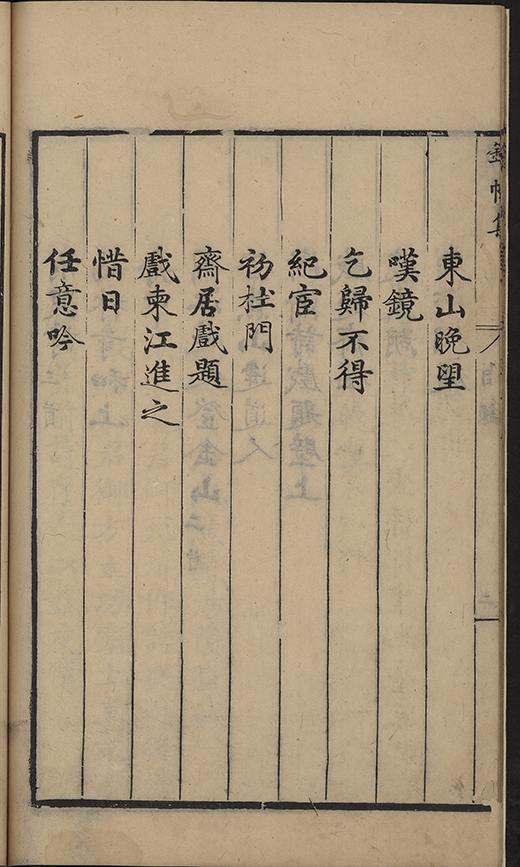 錦帆集
目錄
二
東山晚望
嘆鏡
乞歸不得
紀宦
初杜門
齋居戲題
戲柬江進之
惜日
任意吟